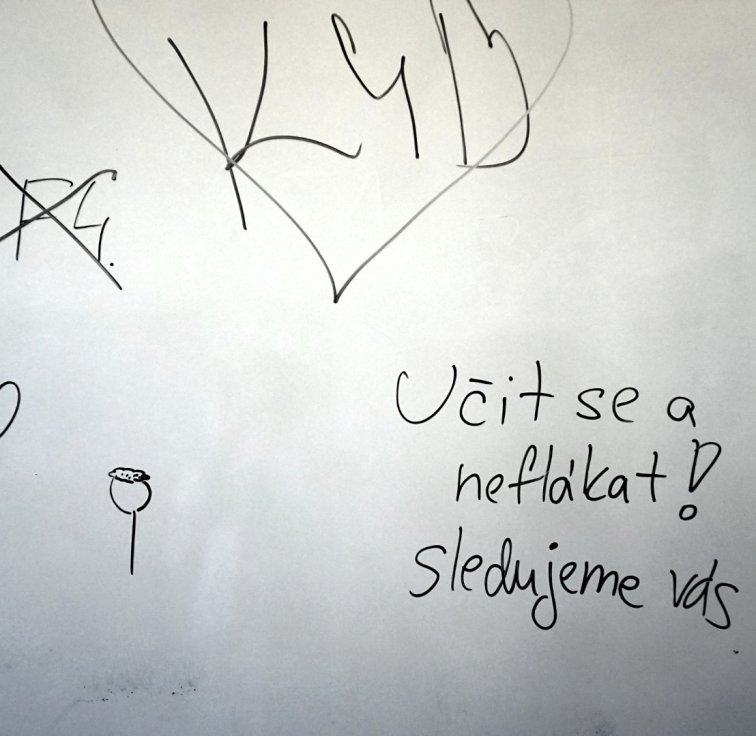 KYD
Učit se a
neflákat!
Sledujeme vás